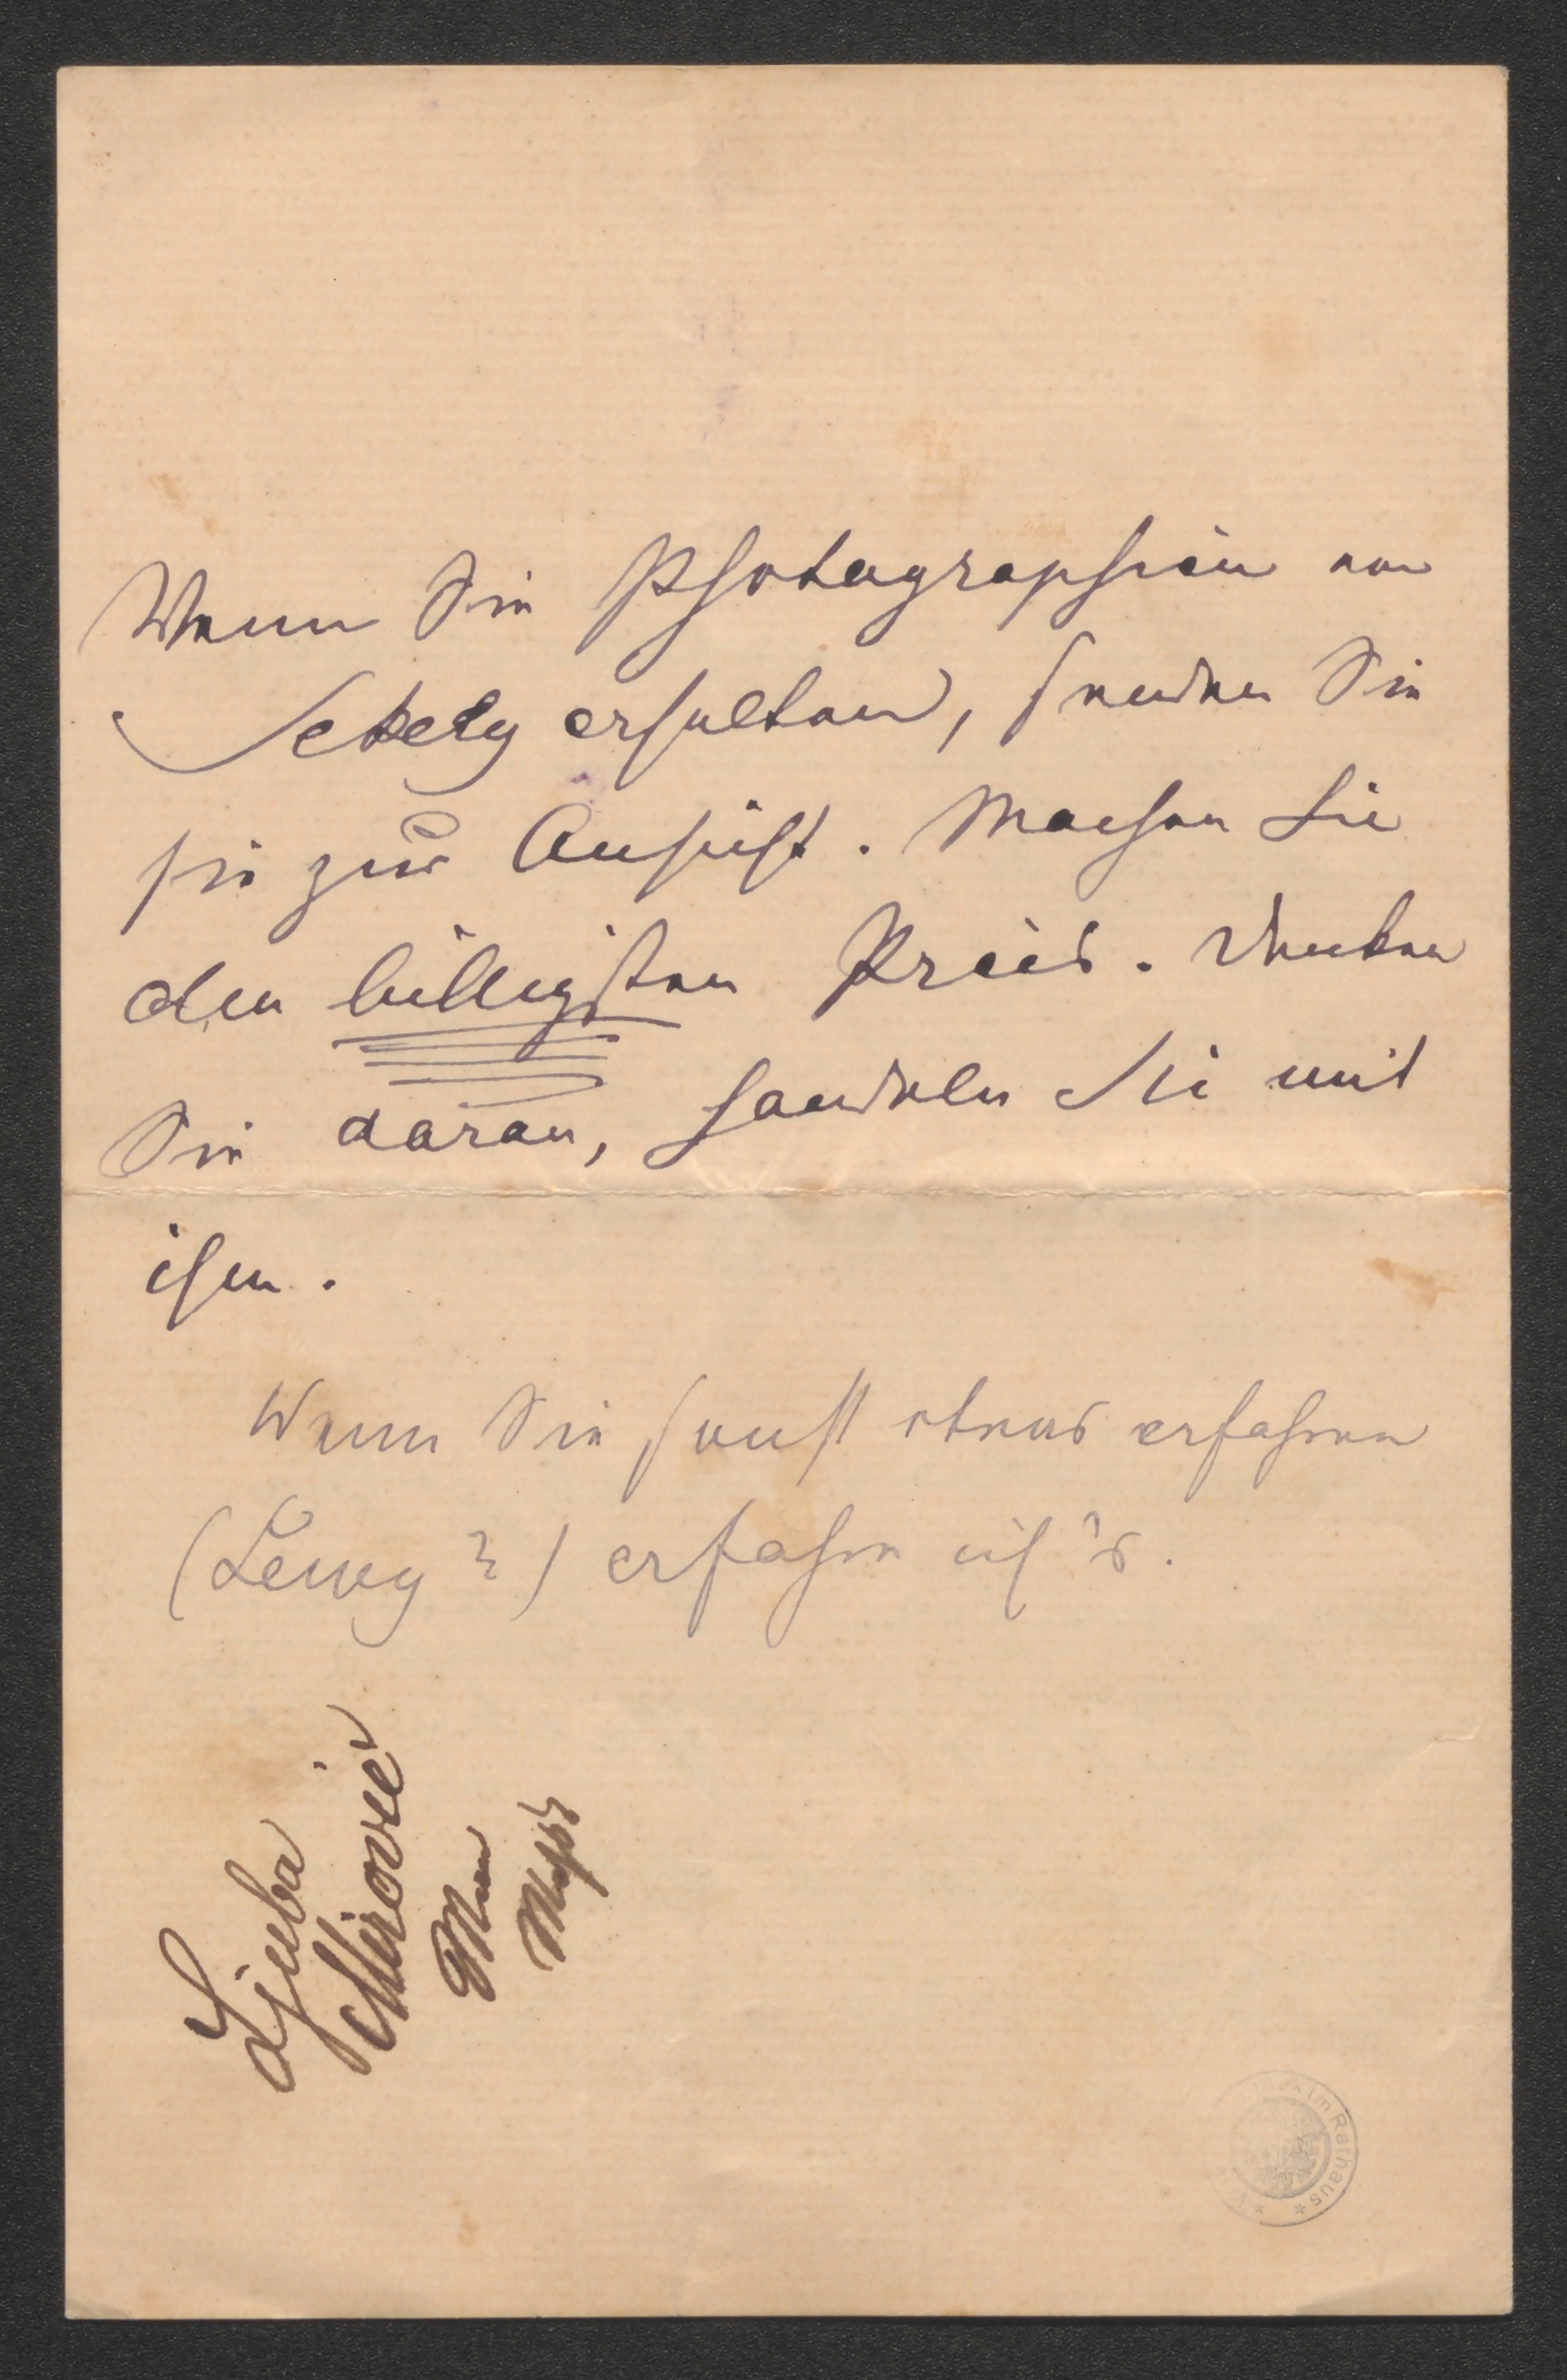 Wenn Sie Photographien von
Sekely erhalten, senden Sie
sie zur Ansicht. Machen Sie
den billigsten Preis. Denken
Sie daran, handeln Sie mit
ihm.
Wenn Sie sonst etwas erfahren
(Lewy?) erfahre ich's.
Ljuba
Mirović
im Rathaus